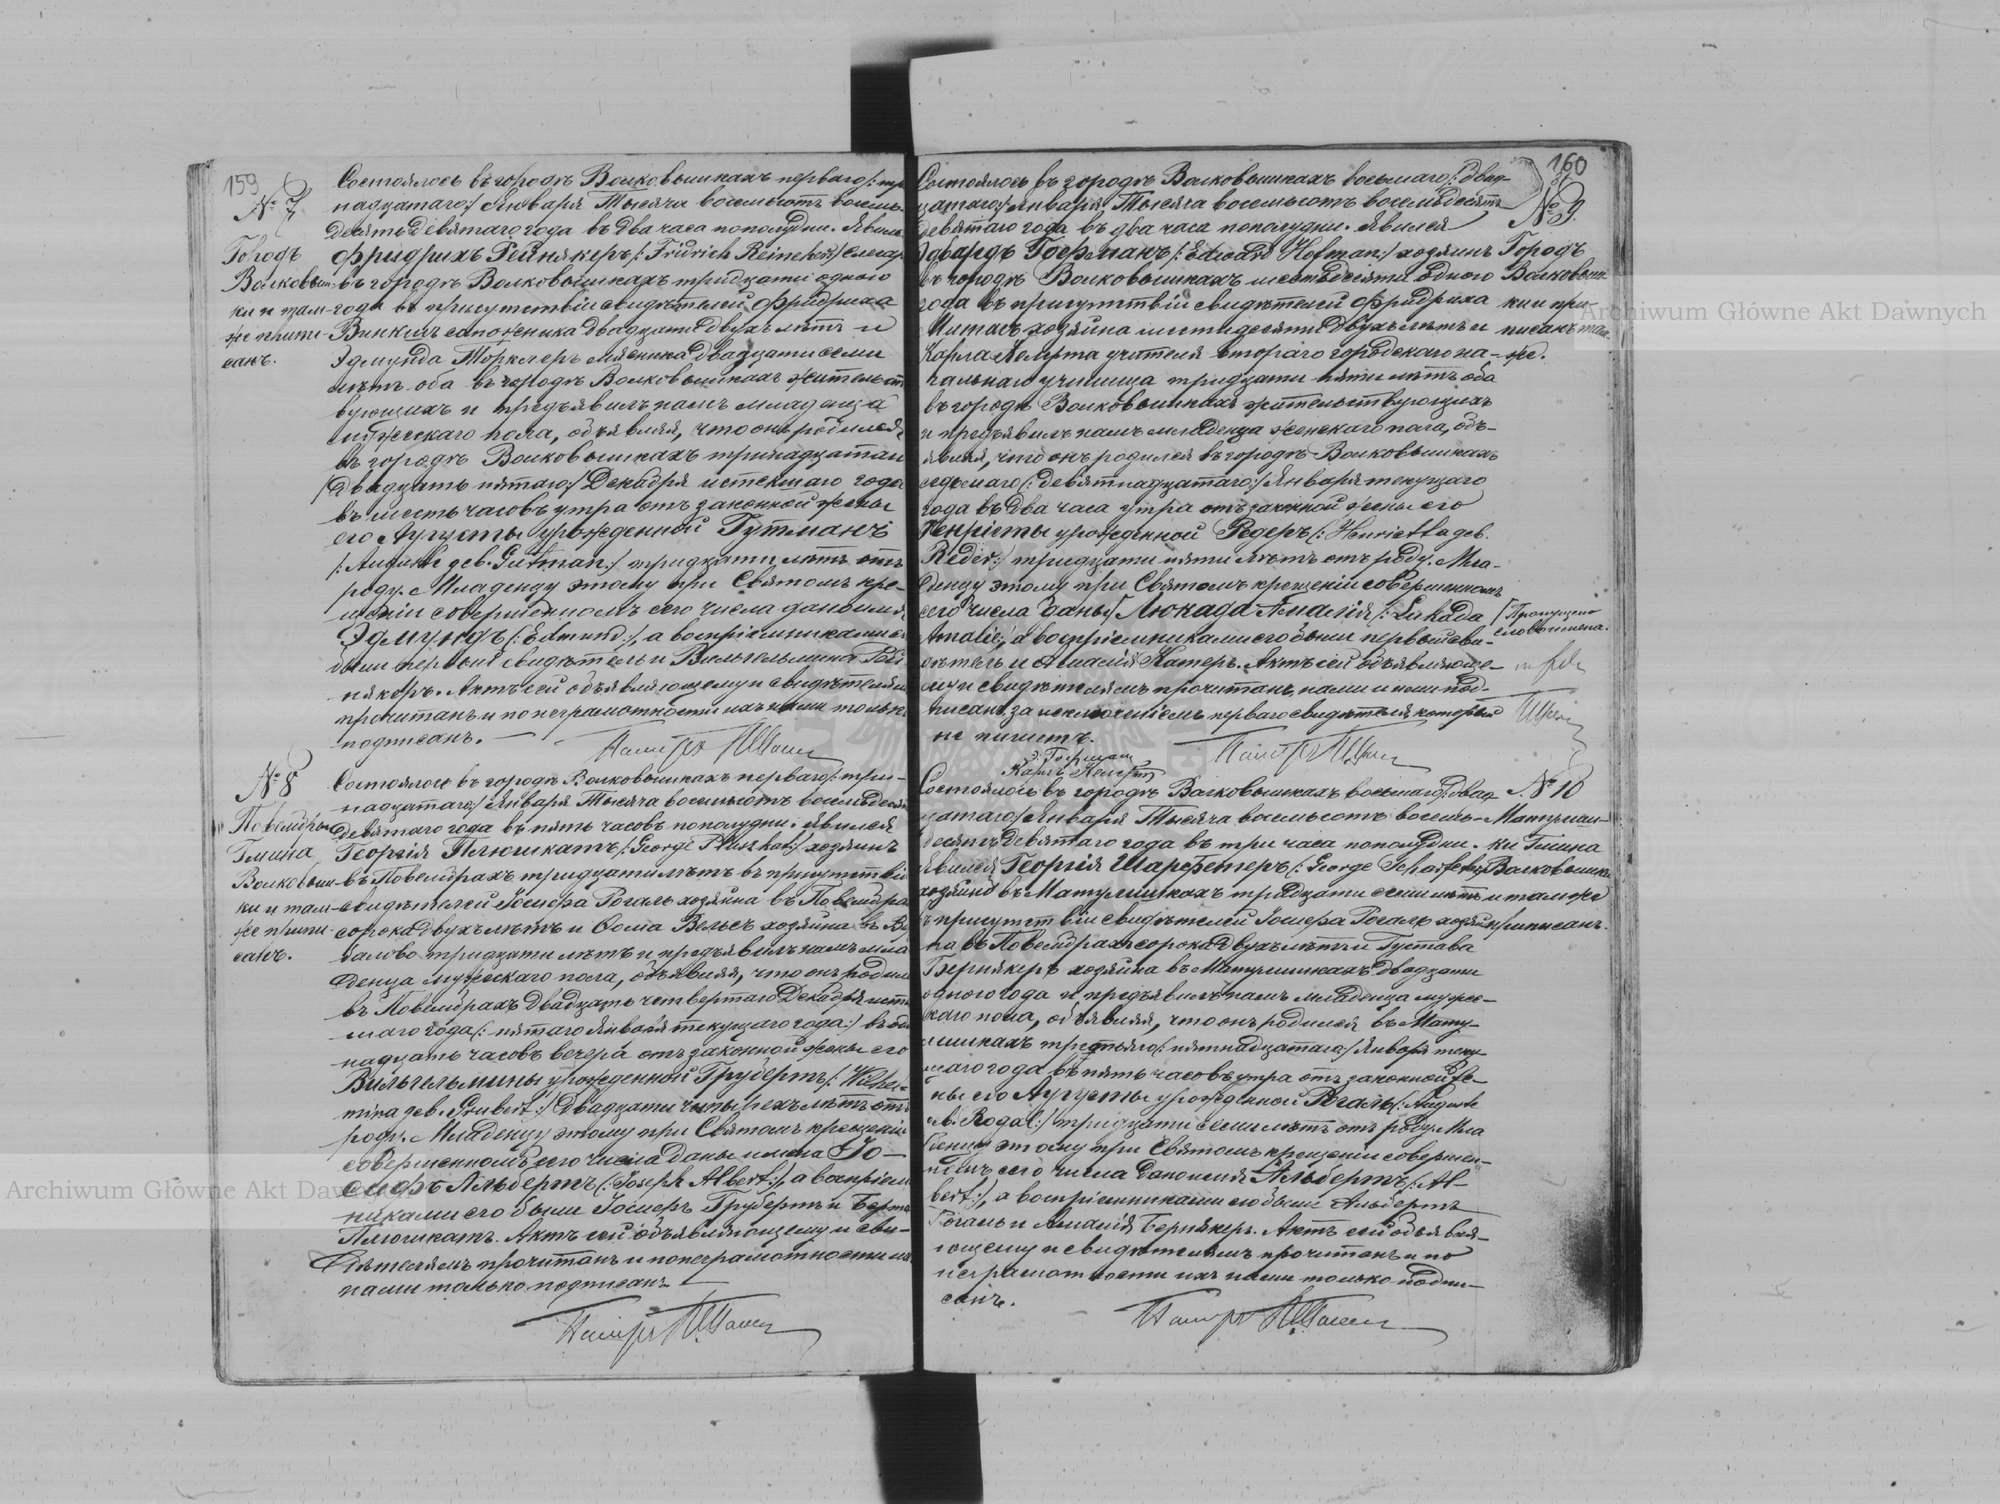 159
№ 7
Городъ
Волковыш-
ки и там-
же припи-
санъ.
Состоялось въ городѣ Волковышкахъ перваго /: три
надцатаго :/ Января Тысяча восемьсотъ восемь-
десятъ девятаго года въ два часа пополудни. Явился
Фридрихъ Рейнякеръ /: Fridrich Reineker :/
въ городѣ Волковышкахъ тридцати одного
года въ присутствіи свидѣтелей Фридриха
сапожника двадцати двухъ лѣтъ и
Эдмунда Торклеръ мясника двадцати семи
лѣтъ оба въ городѣ Волковышкахъ жительст
вующихъ и предъявилъ намъ младенца
мужескаго пола, объявляя, что онъ родился
въ городѣ Волковышкахъ тринадцатаго
/: двадцать пятаго :/ Декабря истекшаго года
въ шесть часовъ утра отъ законной жены
его Августы урожденной Гутманъ
/: дев. Gutman :/ тридцати лѣтъ отъ
роду. Младенцу этому при Святомъ кре-
щеніи совершенномъ сего числа дано имя
Эдмундъ /: Edmund :/, а воспріемниками его
были первый свидѣтель и Вильгельмина Рей
някеръ. Актъ сей объявляющему и свидѣтелямъ
прочитанъ и по неграмотности ихъ нами только
подписанъ. —
№ 8
Повембры
Гмина
Волковыш-
ки и там-
же припи-
санъ.
Состоялось въ городѣ Волковышкахъ перваго /: три-
надцатаго :/ Января Тысяча восемьсотъ восемьдесятъ
девятаго года въ пять часовъ пополудни. Явился
Георгій Плюшкатъ /: George Pluszkat :/ хозяинъ
въ Повембрахъ тридцати лѣтъ въ присутствіи
свидѣтелей Іосифа Рогаль хозяина въ Повембрахъ
сорока двухъ лѣтъ и Ѳома Вельсъ хозяина въ
тридцати лѣтъ и предъявилъ намъ мла
денца мужескаго пола, объявляя, что онъ родился
въ Повембрахъ двадцать четвертаго Декабря истек
шаго года /: пятаго Января текущаго года :/ въ
надцать часовъ вечера отъ законной жены его
Вильгельмины урожденной Грубертъ /: Wilhel-
mina дев. Grubert :/ двадцати четырехъ лѣтъ отъ
роду. Младенцу этому при Святомъ крещеніи
совершенномъ сего числа даны имена Іо-
сифъ Альбертъ /: Joseph Albert :/, а воспріем
никами его были Іосифъ Грубертъ и Берта
Плюшкатъ. Актъ сей объявляющему и сви-
дѣтелямъ прочитанъ и по неграмотности ихъ
нами только подписанъ —
160
№ 9.
Городъ
Волковыш-
ки и при-
писанъ там-
же.
Состоялось въ городѣ Волковышкахъ восьмаго /: двад-
цатаго :/ Января Тысяча восемьсотъ восемьдесятъ
девятаго года въ два часа пополудни. Явился
Эдвардъ Гофманъ /: Edward Hofman :/ хозяинъ
въ городѣ Волковышкахъ шестьдесяти одного
года въ присутствіи свидѣтелей Фридриха
хозяина шестидесяти двухъ лѣтъ и
Карла учителя втораго городскаго на-
чальнаго училища тридцати пяти лѣтъ оба
въ городѣ Волковышкахъ жительствующихъ
и предъявилъ намъ младенца женскаго пола, объ-
являя, что онъ родился въ городѣ Волковышкахъ
седьмаго /: девятнадцатаго :/ Января текущаго
года въ два часа утра отъ законной жены его
Генріеты урожденной Редеръ /: Henrietta дев.
Reder :/ тридцати пяти лѣтъ отъ роду. Мла-
денцу этому при Святомъ крещеніи совершенномъ
сего числа даны Люкада Амалія /: Lukada
Amalie :/, а воспріемниками его были первый сви-
дѣтель и Амалія Катеръ. Актъ сей объявляюще-
му и свидѣтелямъ прочитанъ, нами и ими под-
писанъ за исключеніемъ перваго свидѣтеля который
не пишетъ.
Пропущено
слово имена.
Э. Гофманъ
№ 10
Матлаш-
ки Гмина
Волковышки
и тамже
приписанъ.
Состоялось въ городѣ Волковышкахъ восьмаго /: двад
цатаго :/ Января Тысяча восемьсотъ восемь-
десятъ девятаго года въ три часа пополудни.
Явился Георгій Шарфетеръ
хозяинъ въ тридцати семи лѣтъ
въ присутствіи свидѣтелей Іосифа Рогаль хозяи
на въ Повембрахъ сорока двухъ лѣтъ и Густава
Бернякеръ хозяина въ двадцати
одного года и предъявилъ намъ младенца муже-
скаго пола, объявляя, что онъ родился въ
третьяго /: пятнадцатаго :/ Января теку-
щаго года въ пять часовъ утра отъ законной же-
ны его Августы урожденной Рогаль /: Auguste
дев. Rogal :/ тридцати семи лѣтъ отъ роду. Мла
денцу этому при Святомъ крещеніи совершен-
номъ сего числа дано имя Альбертъ /: Al-
bert :/, а воспріемниками его были Альбертъ
Рогаль и Амалія Бернякеръ. Актъ сей объявля-
ющему и свидѣтелямъ прочитанъ и по
неграмотности ихъ нами только подпи-
санъ.
Archiwum Główne Akt Dawnych
Archiwum Główne Akt Dawnych